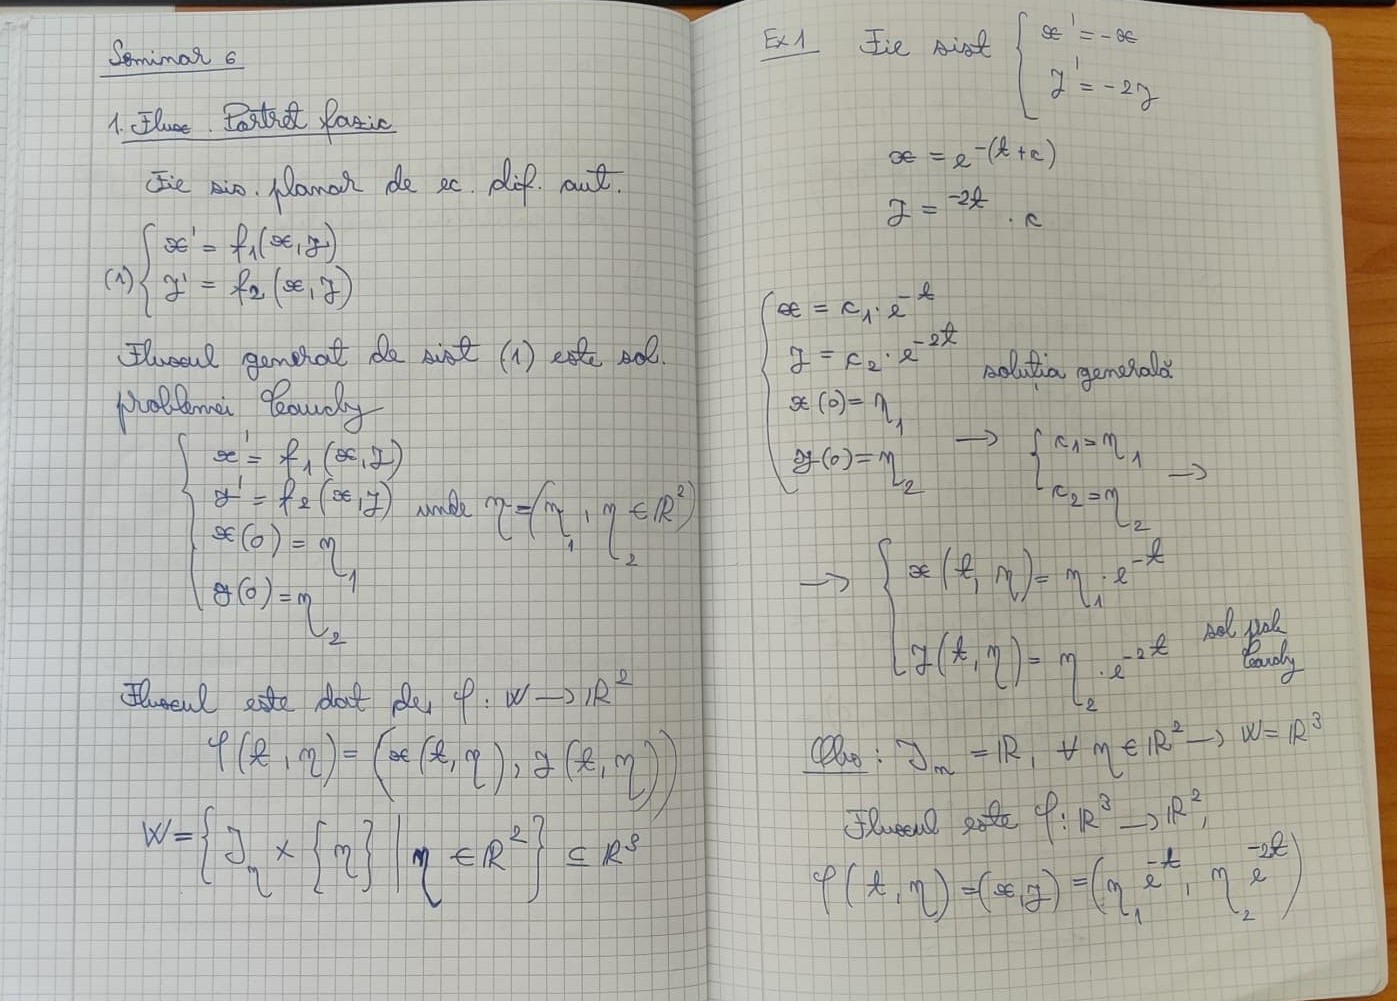 Seminar 6
1. Flux. Portret fazic
Fie sis. planar de ec. dif. aut.
(1) { x' = f₁(x, y)
y' = f₂(x, y)
Fluxul generat de sist (1) este sol.
problemei Cauchy
{ x' = f₁(x, y)
y' = f₂(x, y) unde η = (η₁, η₂ ∈ ℝ²)
x(0) = η₁
y(0) = η₂
Fluxul este dat de, φ : W → ℝ²
φ(t, η) = (x(t, η), y(t, η))
W = { J_η × {η} | η ∈ ℝ² } ⊆ ℝ³
Ex 1 Fie sist { x' = -x
y' = -2y
x = e^{-(t+c)}
y = ^{-2t} · c
{ x = c₁ · e^{-t}
y = c₂ · e^{-2t} soluția generală
x(0) = η₁
y(0) = η₂ → { c₁ = η₁
c₂ = η₂ →
→ { x(t, η) = η₁ · e^{-t}
y(t, η) = η₂ · e^{-2t} sol
Cauchy
Obs : J_η = ℝ, ∀ η ∈ ℝ² → W = ℝ³
Fluxul este φ : ℝ³ → ℝ²,
φ(t, η) = (x, y) = (η₁ e^{-t}, η₂ e^{-2t})